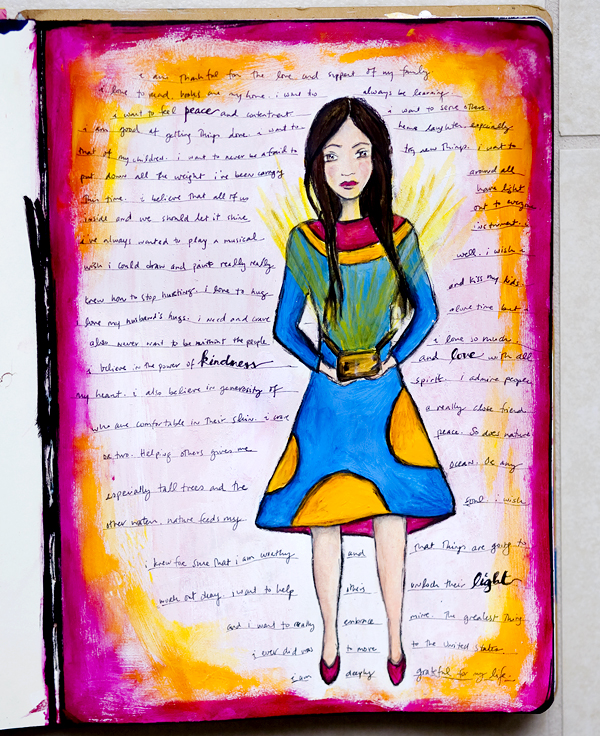 i am thankful for the love and support of my family
i love to read, books are my home. i want to always be learning
i want to feel peace and contentment. i want to serve others
i am good at getting things done. i want to hear laughter. especially
that of my children. i want to never be afraid to try new things. i want to
put down all the weight i've been carrying around all
this time. i believe that all of us have light
inside and we should let it shine out to everyone
i've always wanted to play a musical instrument. i
wish i could draw and paint really really well. i wish i
knew how to stop hurting. i love to hug and kiss my kids.
i love my husband's hugs. i need and crave alone time but i
also never want to be without the people i love so much.
i believe in the power of kindness and love with all
my heart. i also believe in generosity of spirit. i admire people
who are comfortable in their skin. i crave a really close friend
or two. Helping others gives me peace. So does nature
especially tall trees and the ocean. Or any
other water. nature feeds my soul. i wish
i knew for sure that i am worthy and that things are going to
work out okay. i want to help others unlock their light
and i want to really embrace mine. The greatest thing
i ever did was to move to the United States
i am deeply grateful for my life.